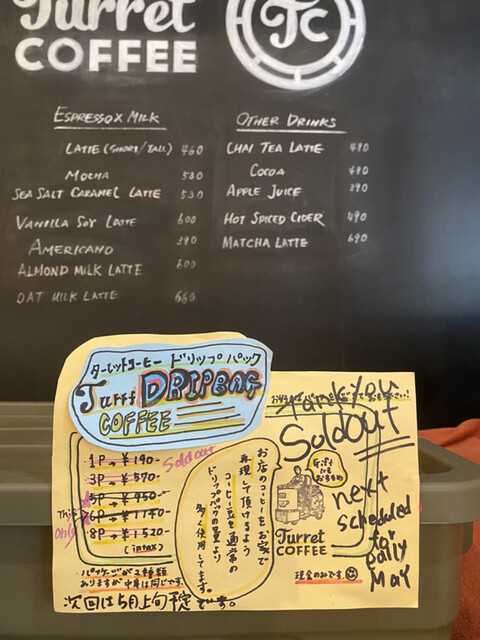 Turret
COFFEE
TC
ESPRESSO X MILK
LATTE (SHORT/TALL) 460
MOCHA 530
SEA SALT CARAMEL LATTE 530
VANILLA SOY LATTE 600
AMERICANO 390
ALMOND MILK LATTE 600
OAT MILK LATTE 660
OTHER DRINKS
CHAI TEA LATTE 490
COCOA 490
APPLE JUICE 390
HOT SPICED CIDER 490
MATCHA LATTE 690
ターレットコーヒー ドリップパック
Turret DRIPBAG
COFFEE
1P → ¥190-
3P → ¥570
5P → ¥950-
6P → ¥1140
8P → ¥1520-
(intax)
Sold out
This
only
パッケージが2種類
ありますが中身は同じです。
次回は5月上旬予定です。
お店のコーヒーをお家で
再現して頂けるよう
コーヒー豆を通常の
ドリップパックの量より
多く使用してます。
Thank you
Sold out
Gift
にも
おすすめ
Turret
COFFEE
現金のみです。
next
scheduled
for
early
May